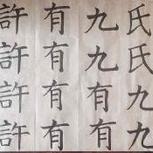 許有九氏
許有九氏
許有有九
許有有九